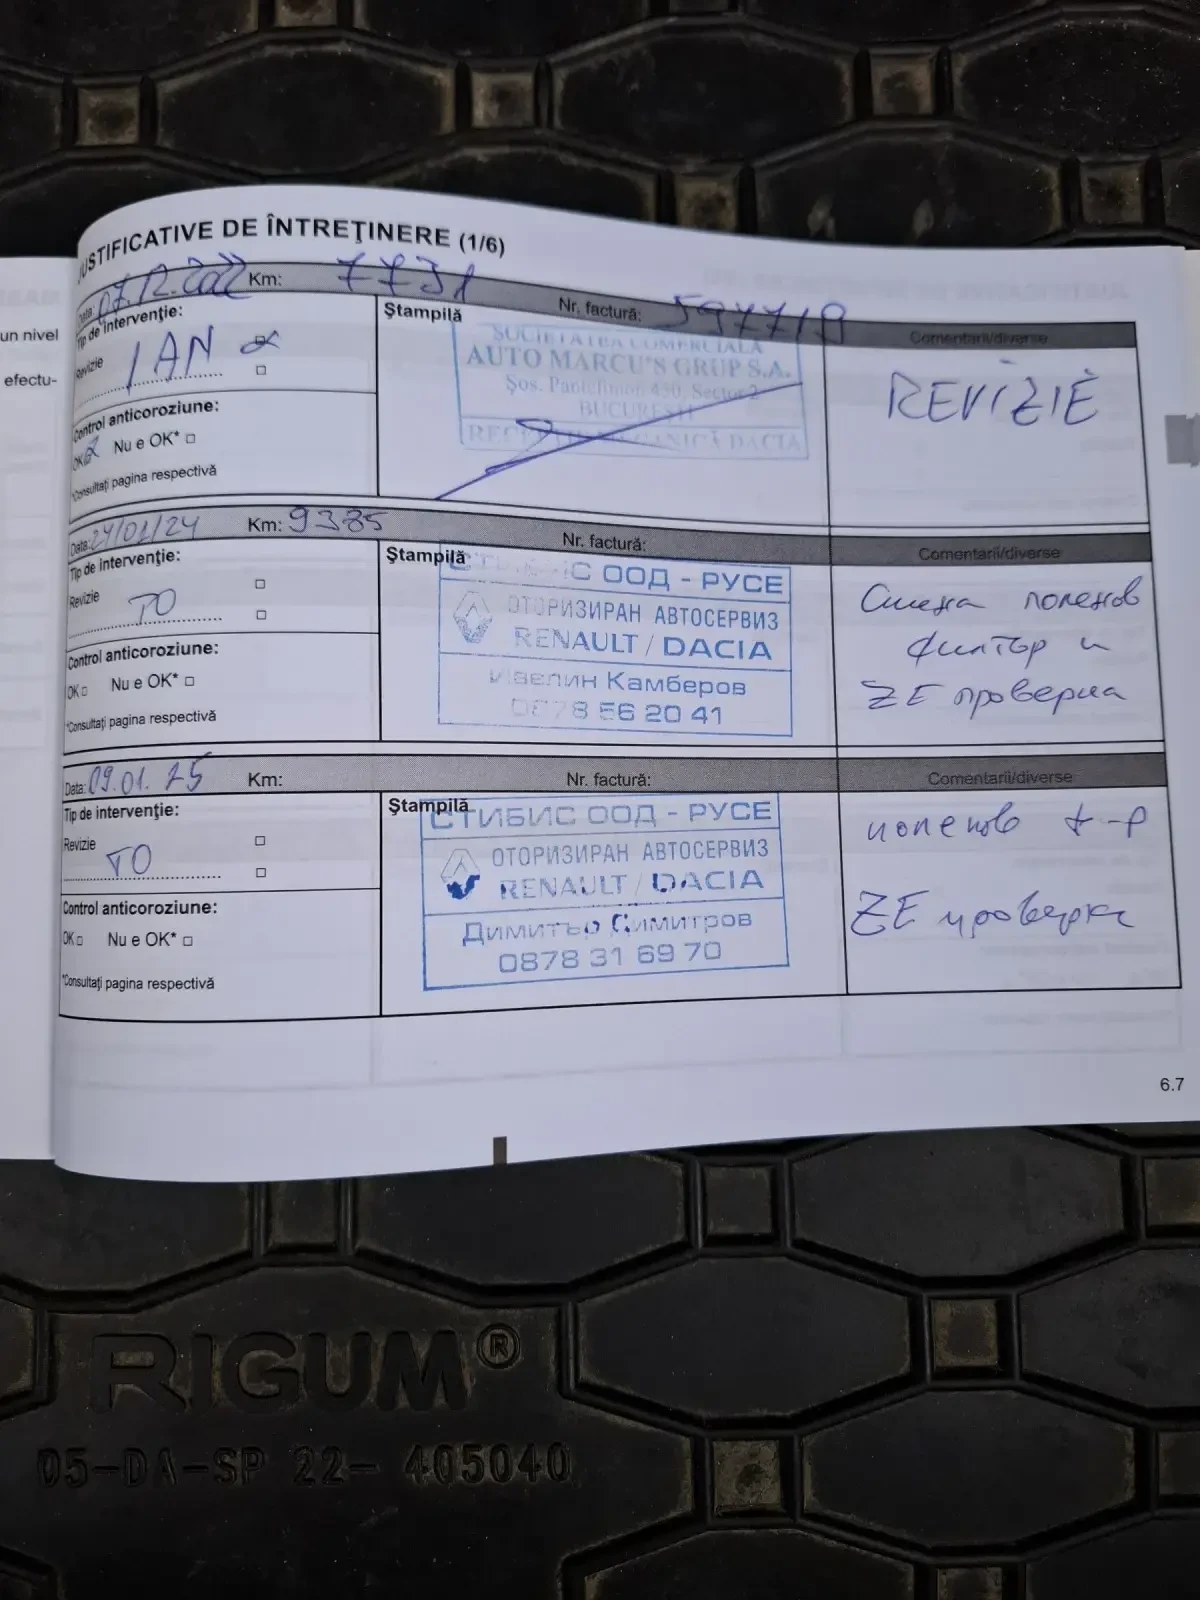 un nivel
efectu-
JUSTIFICATIVE DE ÎNTREŢINERE (1/6)
Data: 07.12.2022 Km: 7731 Nr. factură: 597719 Comentarii/diverse
Tip de intervenţie:
Revizie 1 AN
Control anticoroziune:
OK Nu e OK*
*Consultaţi pagina respectivă
Ştampilă
SOCIETATEA COMERCIALĂ
AUTO MARCU'S GRUP S.A.
Şos. Pantelimon 450, Sector 2
BUCUREŞTI
RECEPŢIE MECANICĂ DACIA
REVIZIE
Data: 24/01/24 Km: 9385 Nr. factură: Comentarii/diverse
Tip de intervenţie:
Revizie TO
Control anticoroziune:
OK Nu e OK*
*Consultaţi pagina respectivă
Ştampilă
СТИБИС ООД - РУСЕ
ОТОРИЗИРАН АВТОСЕРВИЗ
RENAULT / DACIA
Ивелин Камберов
0878 56 20 41
Смяна поленов
филтър и
ZE проверка
Data: 09.01.25 Km: Nr. factură: Comentarii/diverse
Tip de intervenţie:
Revizie TO
Control anticoroziune:
OK Nu e OK*
*Consultaţi pagina respectivă
Ştampilă
СТИБИС ООД - РУСЕ
ОТОРИЗИРАН АВТОСЕРВИЗ
RENAULT / DACIA
Димитър Димитров
0878 31 69 70
поленов ф-р
ZE проверка
6.7
RIGUM®
05-DA-SP 22- 405040